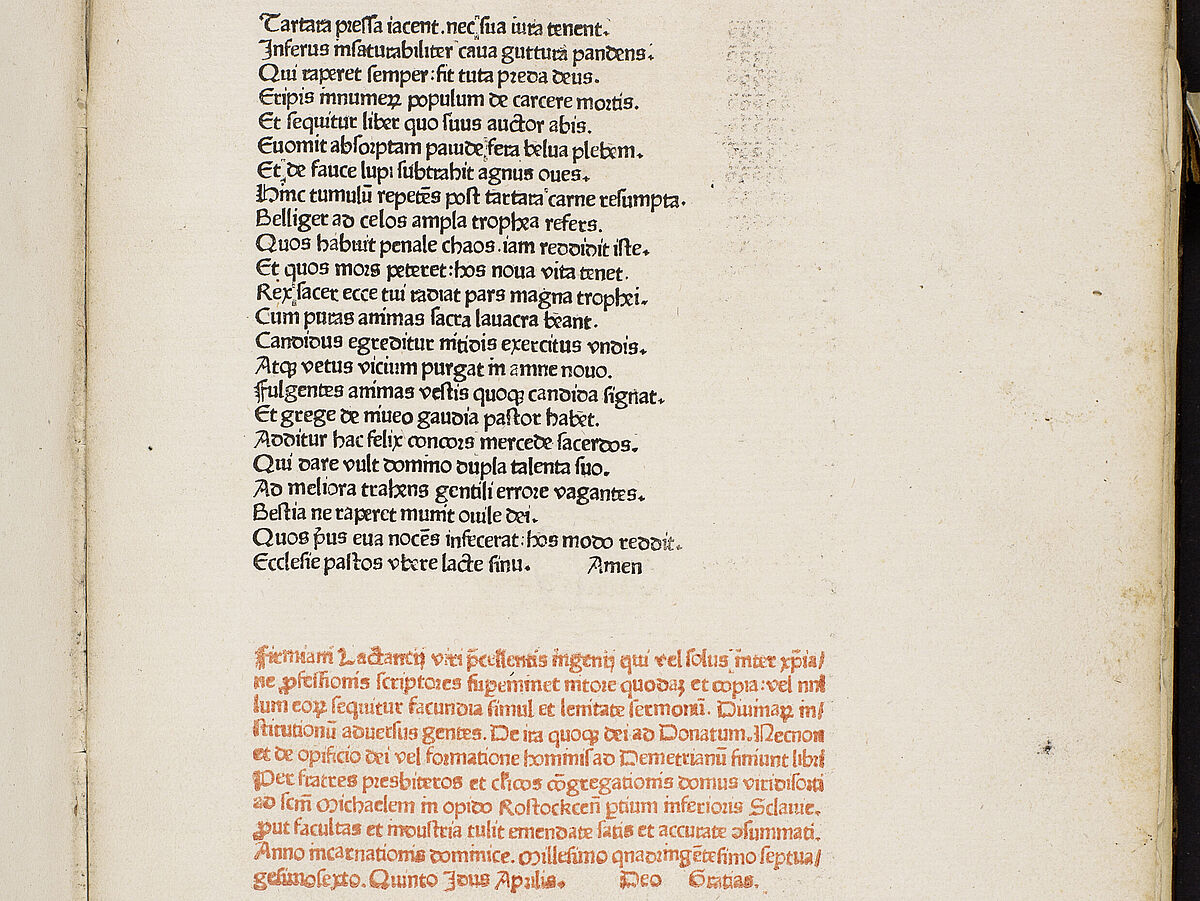 Tartara pressa iacent. nec sua iura tenent.
Inferus insaturabiliter caua guttura pandens.
Qui raperet semper: fit tuta preda deus.
Eripis innumeꝝ populum de carcere mortis.
Et sequitur liber quo suus auctor abis.
Euomit absorptam pauide fera belua plebem.
Et de fauce lupi subtrahit agnus oues.
Hinc tumulū repetēs post tartara carne resumpta.
Belliger ad celos ampla trophea refers.
Quos habuit penale chaos. iam reddidit iste.
Et quos mors peteret: hos noua vita tenet.
Rex sacer ecce tui radiat pars magna trophei.
Cum puras animas sacra lauacra beant.
Candidus egreditur nitidis exercitus vndis.
Atqꝫ vetus vicium purgat in amne nouo.
Fulgentes animas vestis quoqꝫ candida signat.
Et grege de niueo gaudia pastor habet.
Additur hac felix concors mercede sacerdos.
Qui dare vult domino dupla talenta suo.
Ad meliora trahens gentili errore vagantes.
Bestia ne raperet munit ouile dei.
Quos pⁱus eua nocēs infecerat: hos modo reddit.
Ecclesie pastos vbere lacte sinu. Amen
Firmiani Lactantij viri p̄cellentis ingenij qui vel solus inter xp̄ia/
ne ꝓfessionis scriptores suꝑeminet nitore quodaꝫ et copia: vel nul
lum eoꝝ sequitur facundia simul et lenitate sermonū. Diuinaꝝ in/
stitutionū aduersus gentes. De ira quoqꝫ dei ad Donatum. Necnon
et de opificio dei vel formatione hominis ad Demetrianū finiunt libri
Per fratres presbiteros et cłicos cōgregationis domus viridisorti
ad scm̄ Michaelem in opido Rostockceñ ꝑtium inferioris Sclauie.
ꝓut facultas et industria tulit emendate satis et accurate ↄsummati.
Anno incarnationis dominice. Millesimo quadringētesimo septua/
gesimosexto. Quinto Idus Aprilis. Deo Gratias.